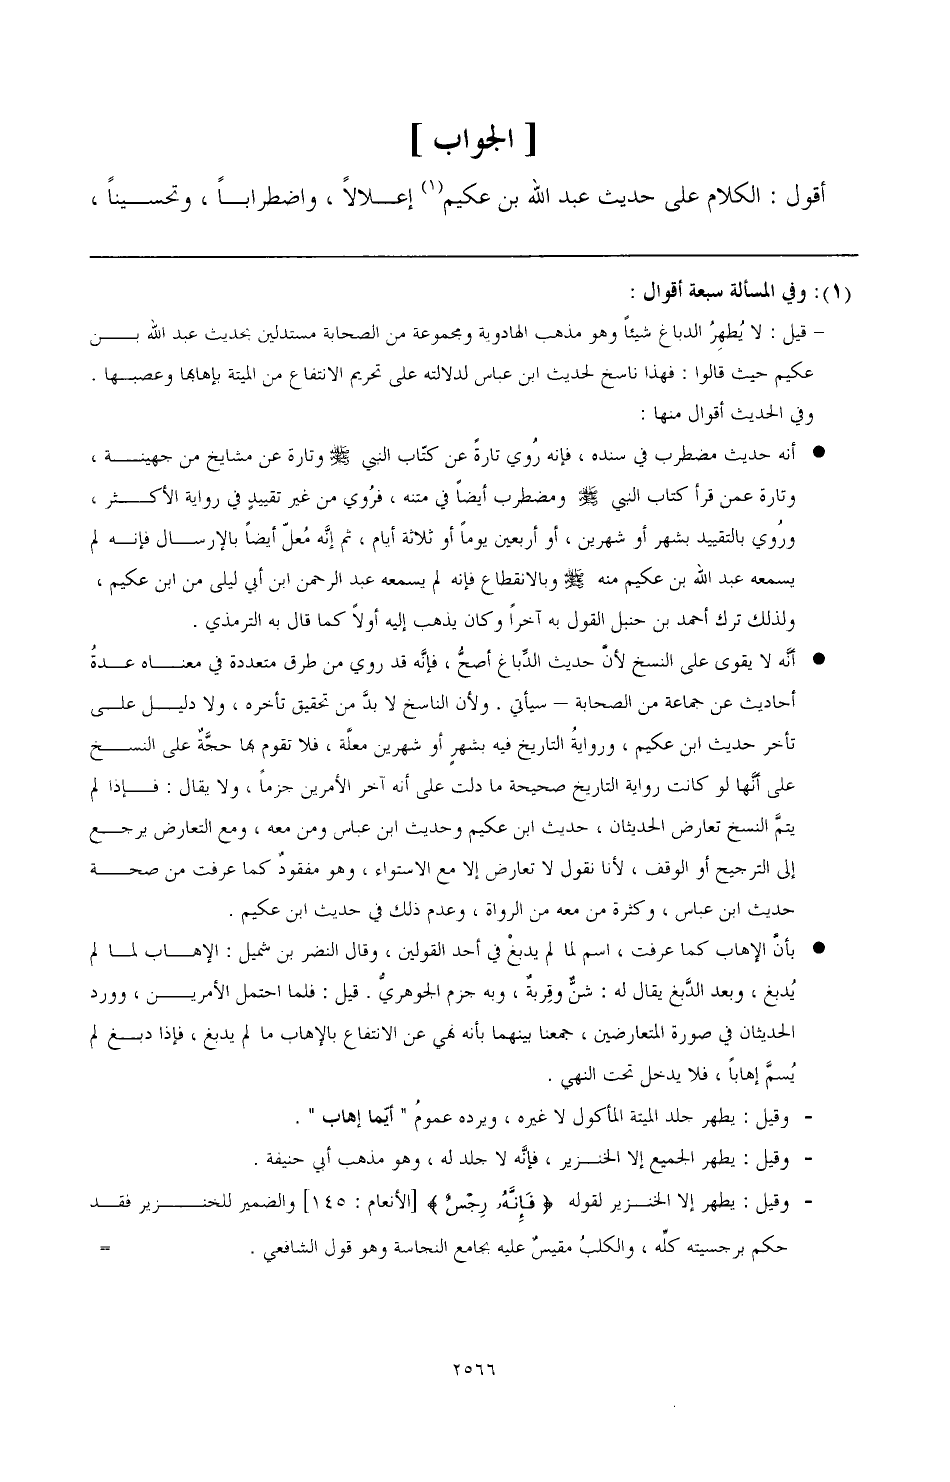 [ الجواب ]
أقول : الكلام على حديث عبد الله بن عكيم(١) إعـــلالاً ، واضطرابـــاً ، وتحســيناً ،
(١): وفي المسألة سبعة أقوال :
– قيل : لا يُطهِرُ الدباغ شيئاً وهو مذهب الهادوية ومجموعة من الصحابة مستدلين بحديث عبد الله بـــن
عكيم حيث قالوا : فهذا ناسخ لحديث ابن عباس لدلالته على تحريم الانتفاع من الميتة بإهابها وعصبـها .
وفي الحديث أقوال منها :
● أنه حديث مضطرب في سنده ، فإنه رُوي تارةً عن كتّاب النبي ﷺ وتارة عن مشايخ من جهينــة ،
وتارة عمن قرأ كتاب النبي ﷺ ومضطرب أيضاً في متنه ، فرُوي من غير تقييدٍ في رواية الأكـــثر ،
ورُوي بالتقييد بشهر أو شهرين ، أو أربعين يوماً أو ثلاثة أيام ، ثم إنَّه مُعلّ أيضاً بالإرســال فإنــه لم
يسمعه عبد الله بن عكيم منه ﷺ وبالانقطاع فإنه لم يسمعه عبد الرحمن ابن أبي ليلى من ابن عكيم ،
ولذلك ترك أحمد بن حنبل القول به آخراً وكان يذهب إليه أولاً كما قال به الترمذي .
● أنَّه لا يقوى على النسخ لأنَّ حديث الدِّباغ أصحُّ ، فإنَّه قد روي من طرق متعددة في معنــاه عــدةُ
أحاديث عن جماعة من الصحابة – سيأتي . ولأن الناسخ لا بدَّ من تحقيق تأخره ، ولا دليــل علــى
تأخر حديث ابن عكيم ، وروايةُ التاريخ فيه بشهرٍ أو شهرين معلَّة ، فلا تقوم بها حجَّةٌ على النســخ
على أنَّها لو كانت رواية التاريخ صحيحة ما دلت على أنه آخر الأمرين جزماً ، ولا يقال : فــإذا لم
يتمَّ النسخ تعارض الحديثان ، حديث ابن عكيم وحديث ابن عباس ومن معه ، ومع التعارض يرجــع
إلى الترجيح أو الوقف ، لأنا نقول لا تعارض إلا مع الاستواء ، وهو مفقودٌ كما عرفت من صحــة
حديث ابن عباس ، وكثرة من معه من الرواة ، وعدم ذلك في حديث ابن عكيم .
● بأنَّ الإهاب كما عرفت ، اسم لما لم يدبغْ في أحد القولين ، وقال النضر بن شميل : الإهــاب لمــا لم
يُدبغ ، وبعد الدَّبغ يقال له : شنٌّ وقِربةٌ ، وبه جزم الجوهريُّ . قيل : فلما احتمل الأمريــن ، وورد
الحديثان في صورة المتعارضين ، جمعنا بينهما بأنه نهي عن الانتفاع بالإهاب ما لم يدبغ ، فإذا دبــغ لم
يُسمَّ إهاباً ، فلا يدخل تحت النهي .
- وقيل : يطهر جلد الميتة المأكول لا غيره ، ويرده عمومُ " أيّما إهاب " .
- وقيل : يطهر الجميع إلا الخنــزير ، فإنَّه لا جلد له ، وهو مذهب أبي حنيفة .
- وقيل : يطهر إلا الخنــزير لقوله ﴿ فَإِنَّهُۥ رِجْسٌ ﴾ [الأنعام : ١٤٥] والضمير للخنـــزير فقــد
حكم برجسيته كلّه ، والكلبُ مقيسٌ عليه بجامع النجاسة وهو قول الشافعي . =
٢٥٦٦